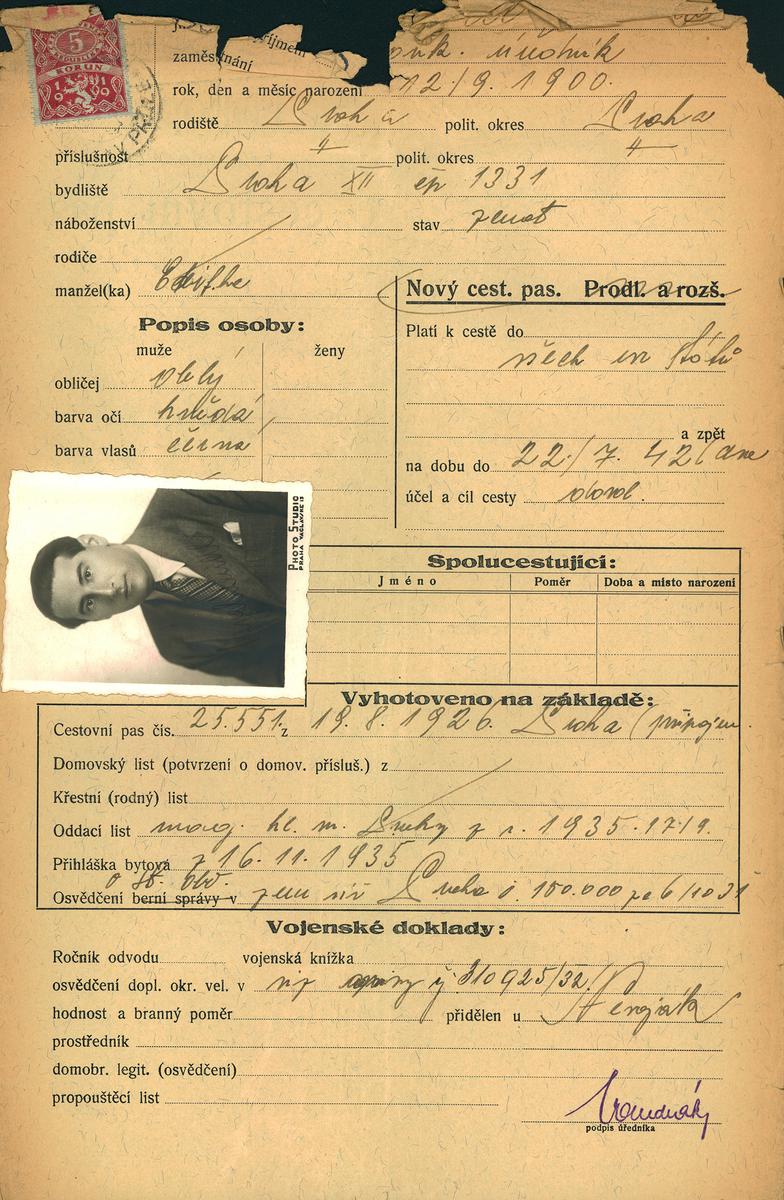 5
KORUN
19 19
V PRAZE
příjmení
zaměstnání úředník
rok, den a měsíc narození 12/9. 1900.
rodiště Praha polit. okres Praha
příslušnost " polit. okres "
bydliště Praha XII čp 1331
náboženství stav ženat
rodiče
manžel(ka)
Nový cest. pas. Prodl. a rozš.
Popis osoby:
muže ženy
obličej oblý
barva očí hnědá
barva vlasů černá
Platí k cestě do
všech ev států
a zpět
na dobu do 22./7. 42
účel a cíl cesty dovol.
PHOTO STUDIO
PRAHA VÁCLAVSKÉ
Spolucestující:
Jméno Poměr Doba a místo narození
Vyhotoveno na základě:
Cestovní pas čís. 25.551 z 19. 8. 1926. Praha (připojen
Domovský list (potvrzení o domov. přísluš.) z
Křestní (rodný) list
Oddací list mag. hl. m. Prahy z r. 1935. 17/9.
Přihláška bytová z 16. 11. 1935
o st. obč.
Osvědčení berní správy v zem úř Praha č. 150.000 ze 6/10 31
Vojenské doklady:
Ročník odvodu vojenská knížka
osvědčení dopl. okr. vel. v č. 310925/32.
hodnost a branný poměr přidělen u
prostředník
domobr. legit. (osvědčení)
propouštěcí list
podpis úředníka